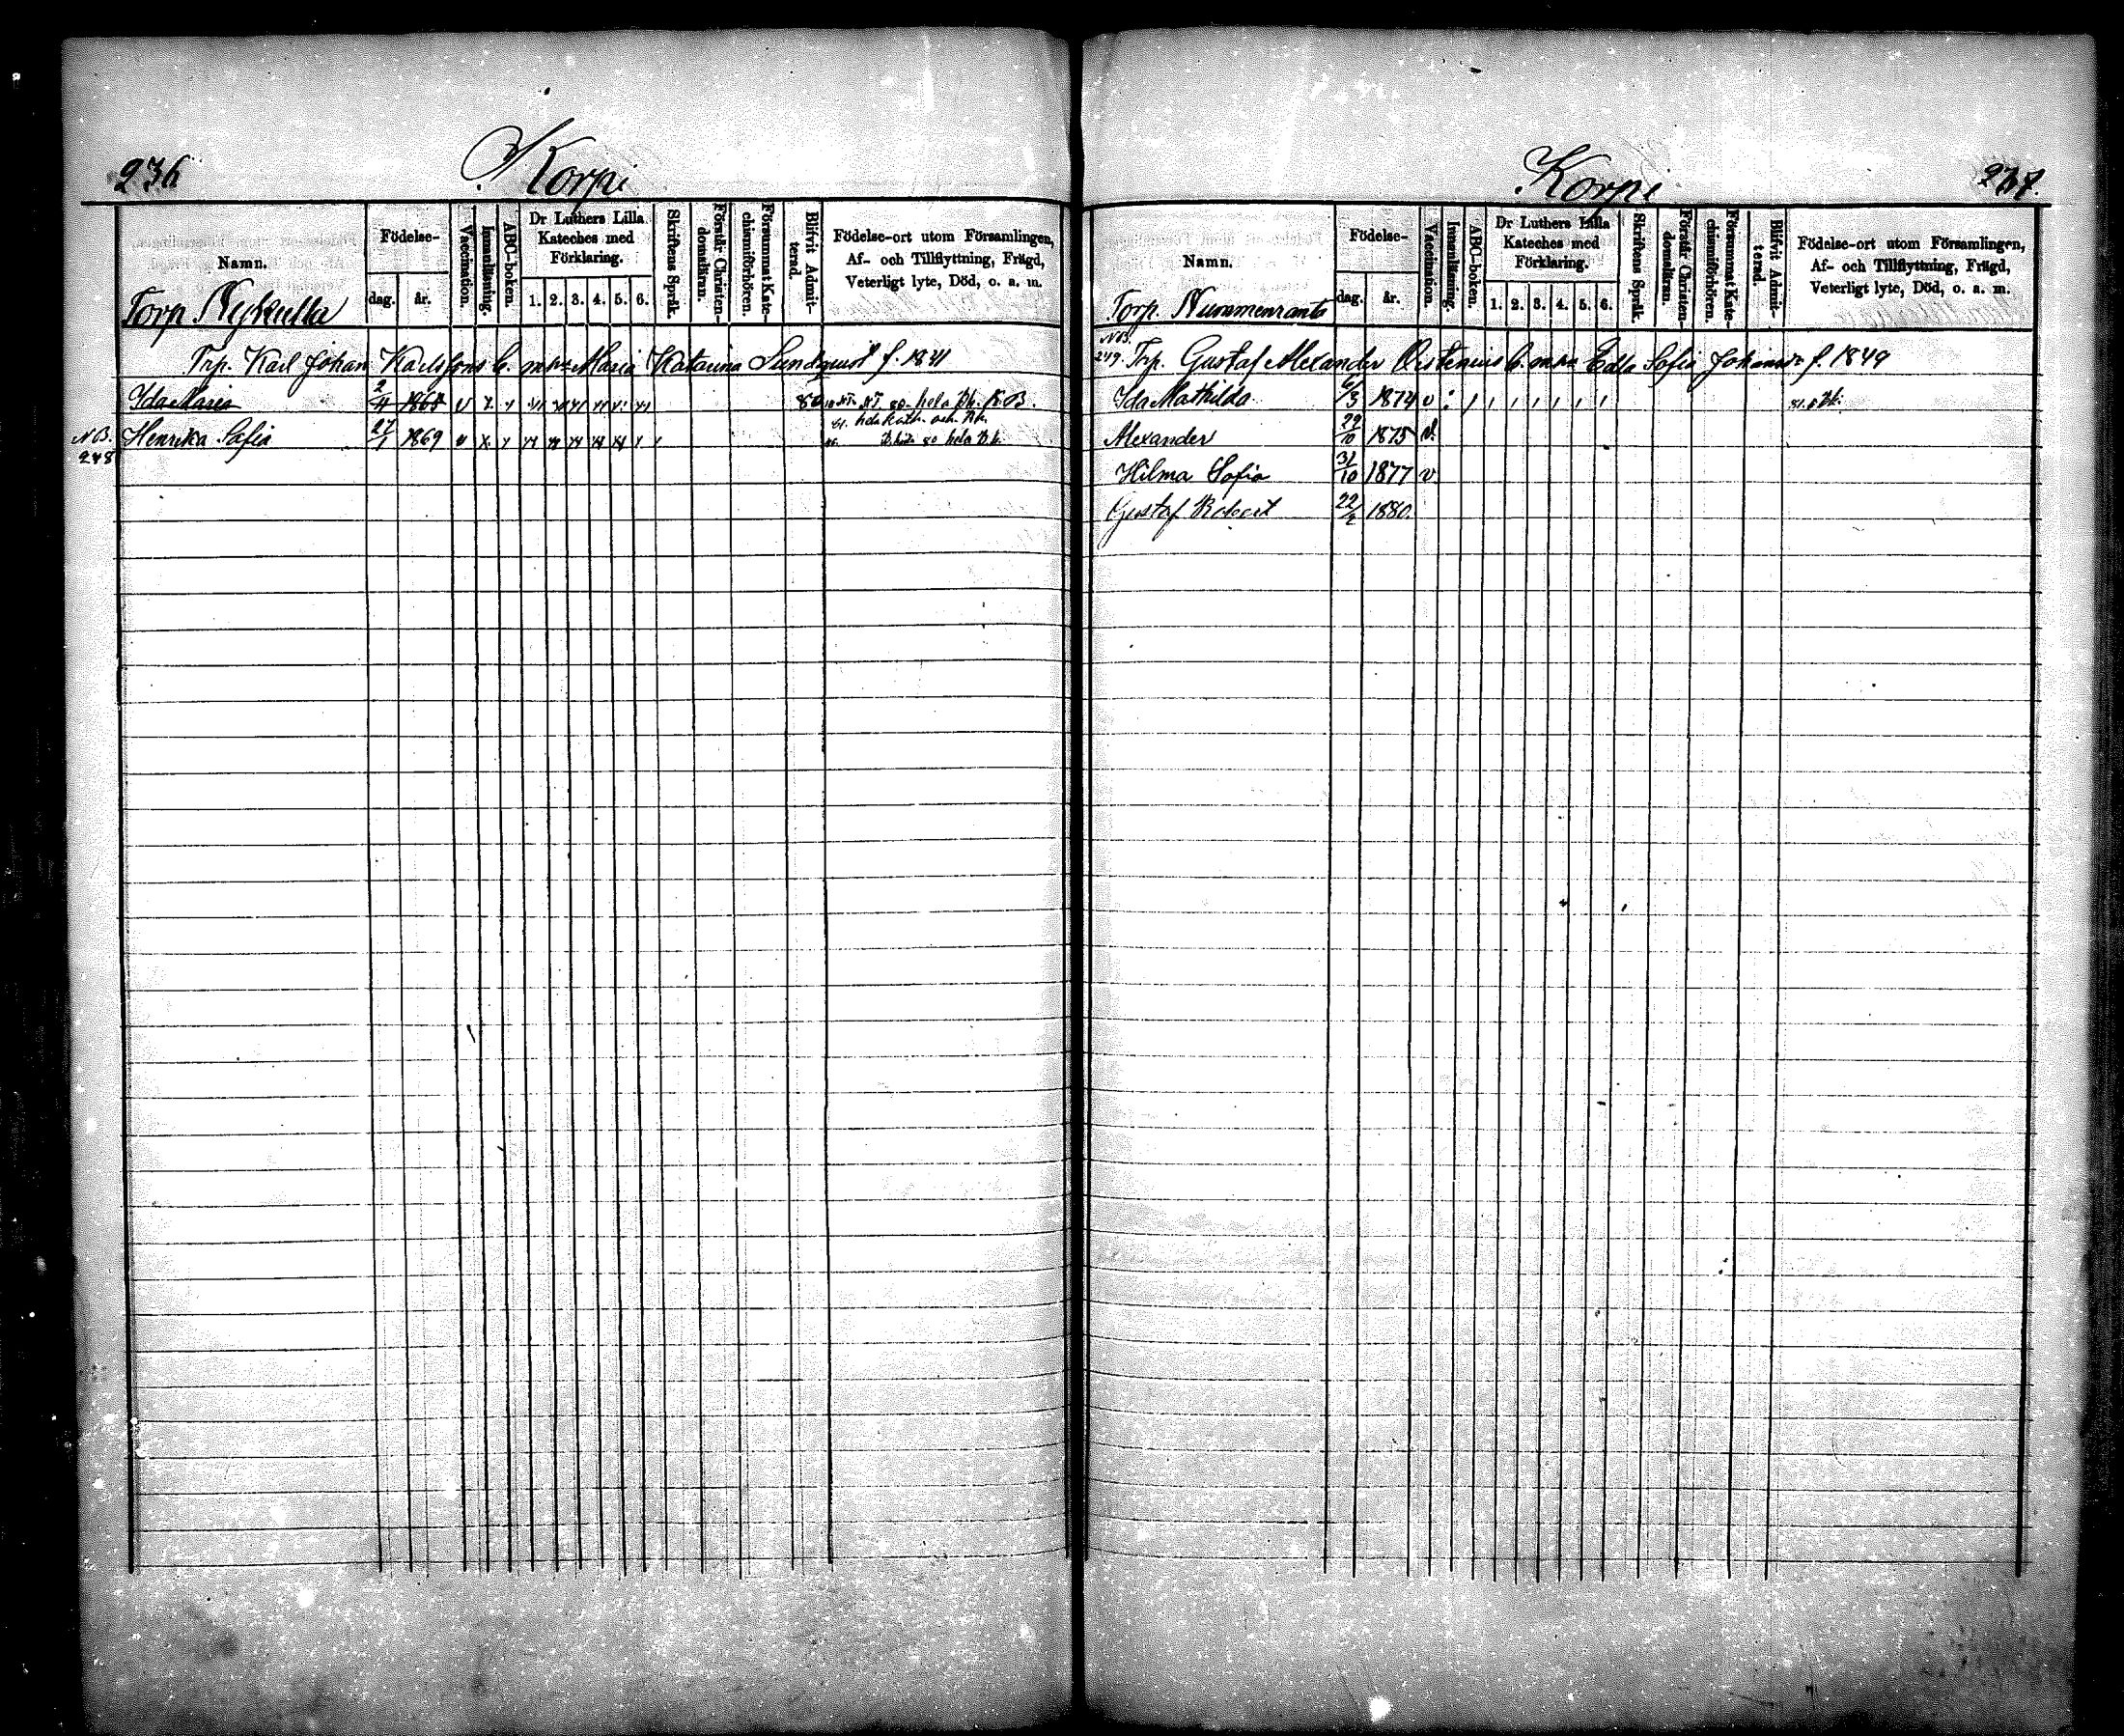 236
Korpi
Namn.
Födelse-
dag.
år.
Vaccination.
Innanläsning.
ABC-boken.
Dr Luthers Lilla
Kateches med
Förklaring.
1. 2. 3. 4. 5. 6.
Skriftens Språk.
Förstår Christen-
domsläran.
Försummat Kate-
chismiförhören.
Blifvit Admit-
terad.
Födelse-ort utom Församlingen,
Af- och Tillflyttning, Frägd,
Veterligt lyte, Död, o. a. m.
Torp Nykulla
Trp. Karl Johan Karlssons b. m. h. Maria Katarina Sundqvist f. 1841
Ida Maria 2/4 1865 v
hela Bk.
Henrika Sofia 27/1 1869 v
80 hela Bk.
NB.
248
Korpi
237.
Namn.
Födelse-
dag.
år.
Vaccination.
Innanläsning.
ABC-boken.
Dr Luthers Lilla
Kateches med
Förklaring.
1. 2. 3. 4. 5. 6.
Skriftens Språk.
Förstår Christen-
domsläran.
Försummat Kate-
chismiförhören.
Blifvit Admit-
terad.
Födelse-ort utom Församlingen,
Af- och Tillflyttning, Frägd,
Veterligt lyte, Död, o. a. m.
Torp. Nummenranta
NB.
249. Trp. Gustaf Alexander b. Edla Sofia f. 1849
Ida Mathilda 6/3 1874 v
Alexander 29/10 1875 v.
Hilma Sofia 31/10 1877 v
Gustaf Robert 22/2 1880.